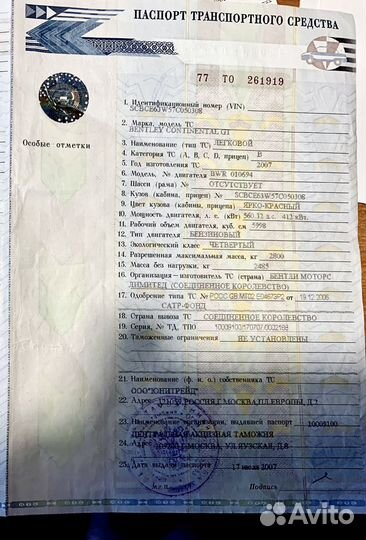 ПАСПОРТ ТРАНСПОРТНОГО СРЕДСТВА
77 ТО 261919
Особые отметки
1. Идентификационный номер (VIN) SCBCE63W57C050308
2. Марка, модель ТС BENTLEY CONTINENTAL GT
3. Наименование (тип ТС) ЛЕГКОВОЙ
4. Категория ТС (A, B, C, D, прицеп) B
5. Год изготовления ТС 2007
6. Модель, № двигателя BWR 010694
7. Шасси (рама) № ОТСУТСТВУЕТ
8. Кузов (кабина, прицеп) № SCBCE63W57C050308
9. Цвет кузова (кабины, прицепа) ЯРКО-КРАСНЫЙ
10. Мощность двигателя, л. с. (кВт) 560.12 л.с. 412 кВт.
11. Рабочий объем двигателя, куб. см 5998
12. Тип двигателя БЕНЗИНОВЫЙ
13. Экологический класс ЧЕТВЕРТЫЙ
14. Разрешенная максимальная масса, кг 2800
15. Масса без нагрузки, кг 2485
16. Организация-изготовитель ТС (страна) БЕНТЛИ МОТОРС
ЛИМИТЕД (СОЕДИНЕННОЕ КОРОЛЕВСТВО)
17. Одобрение типа ТС № РОСС GB.МТ02.E04673P2 от 19.12.2006
САТР-ФОНД
18. Страна вывоза ТС СОЕДИНЕННОЕ КОРОЛЕВСТВО
19. Серия, № ТД, ТПО 10009100/170707/0002168
20. Таможенные ограничения НЕ УСТАНОВЛЕНЫ
21. Наименование (ф. и. о.) собственника ТС
ООО"ЮНИТРЕЙД"
22. Адрес 121059,РОССИЯ,Г.МОСКВА,ПЛ.ЕВРОПЫ,Д.2
23. Наименование организации, выдавшей паспорт 10009100
ЦЕНТРАЛЬНАЯ АКЦИЗНАЯ ТАМОЖНЯ
24. Адрес 109240,Г.МОСКВА, УЛ.ЯУЗСКАЯ, Д.8
25. Дата выдачи паспорта 17 июля 2007
М. П. Подпись
Avito